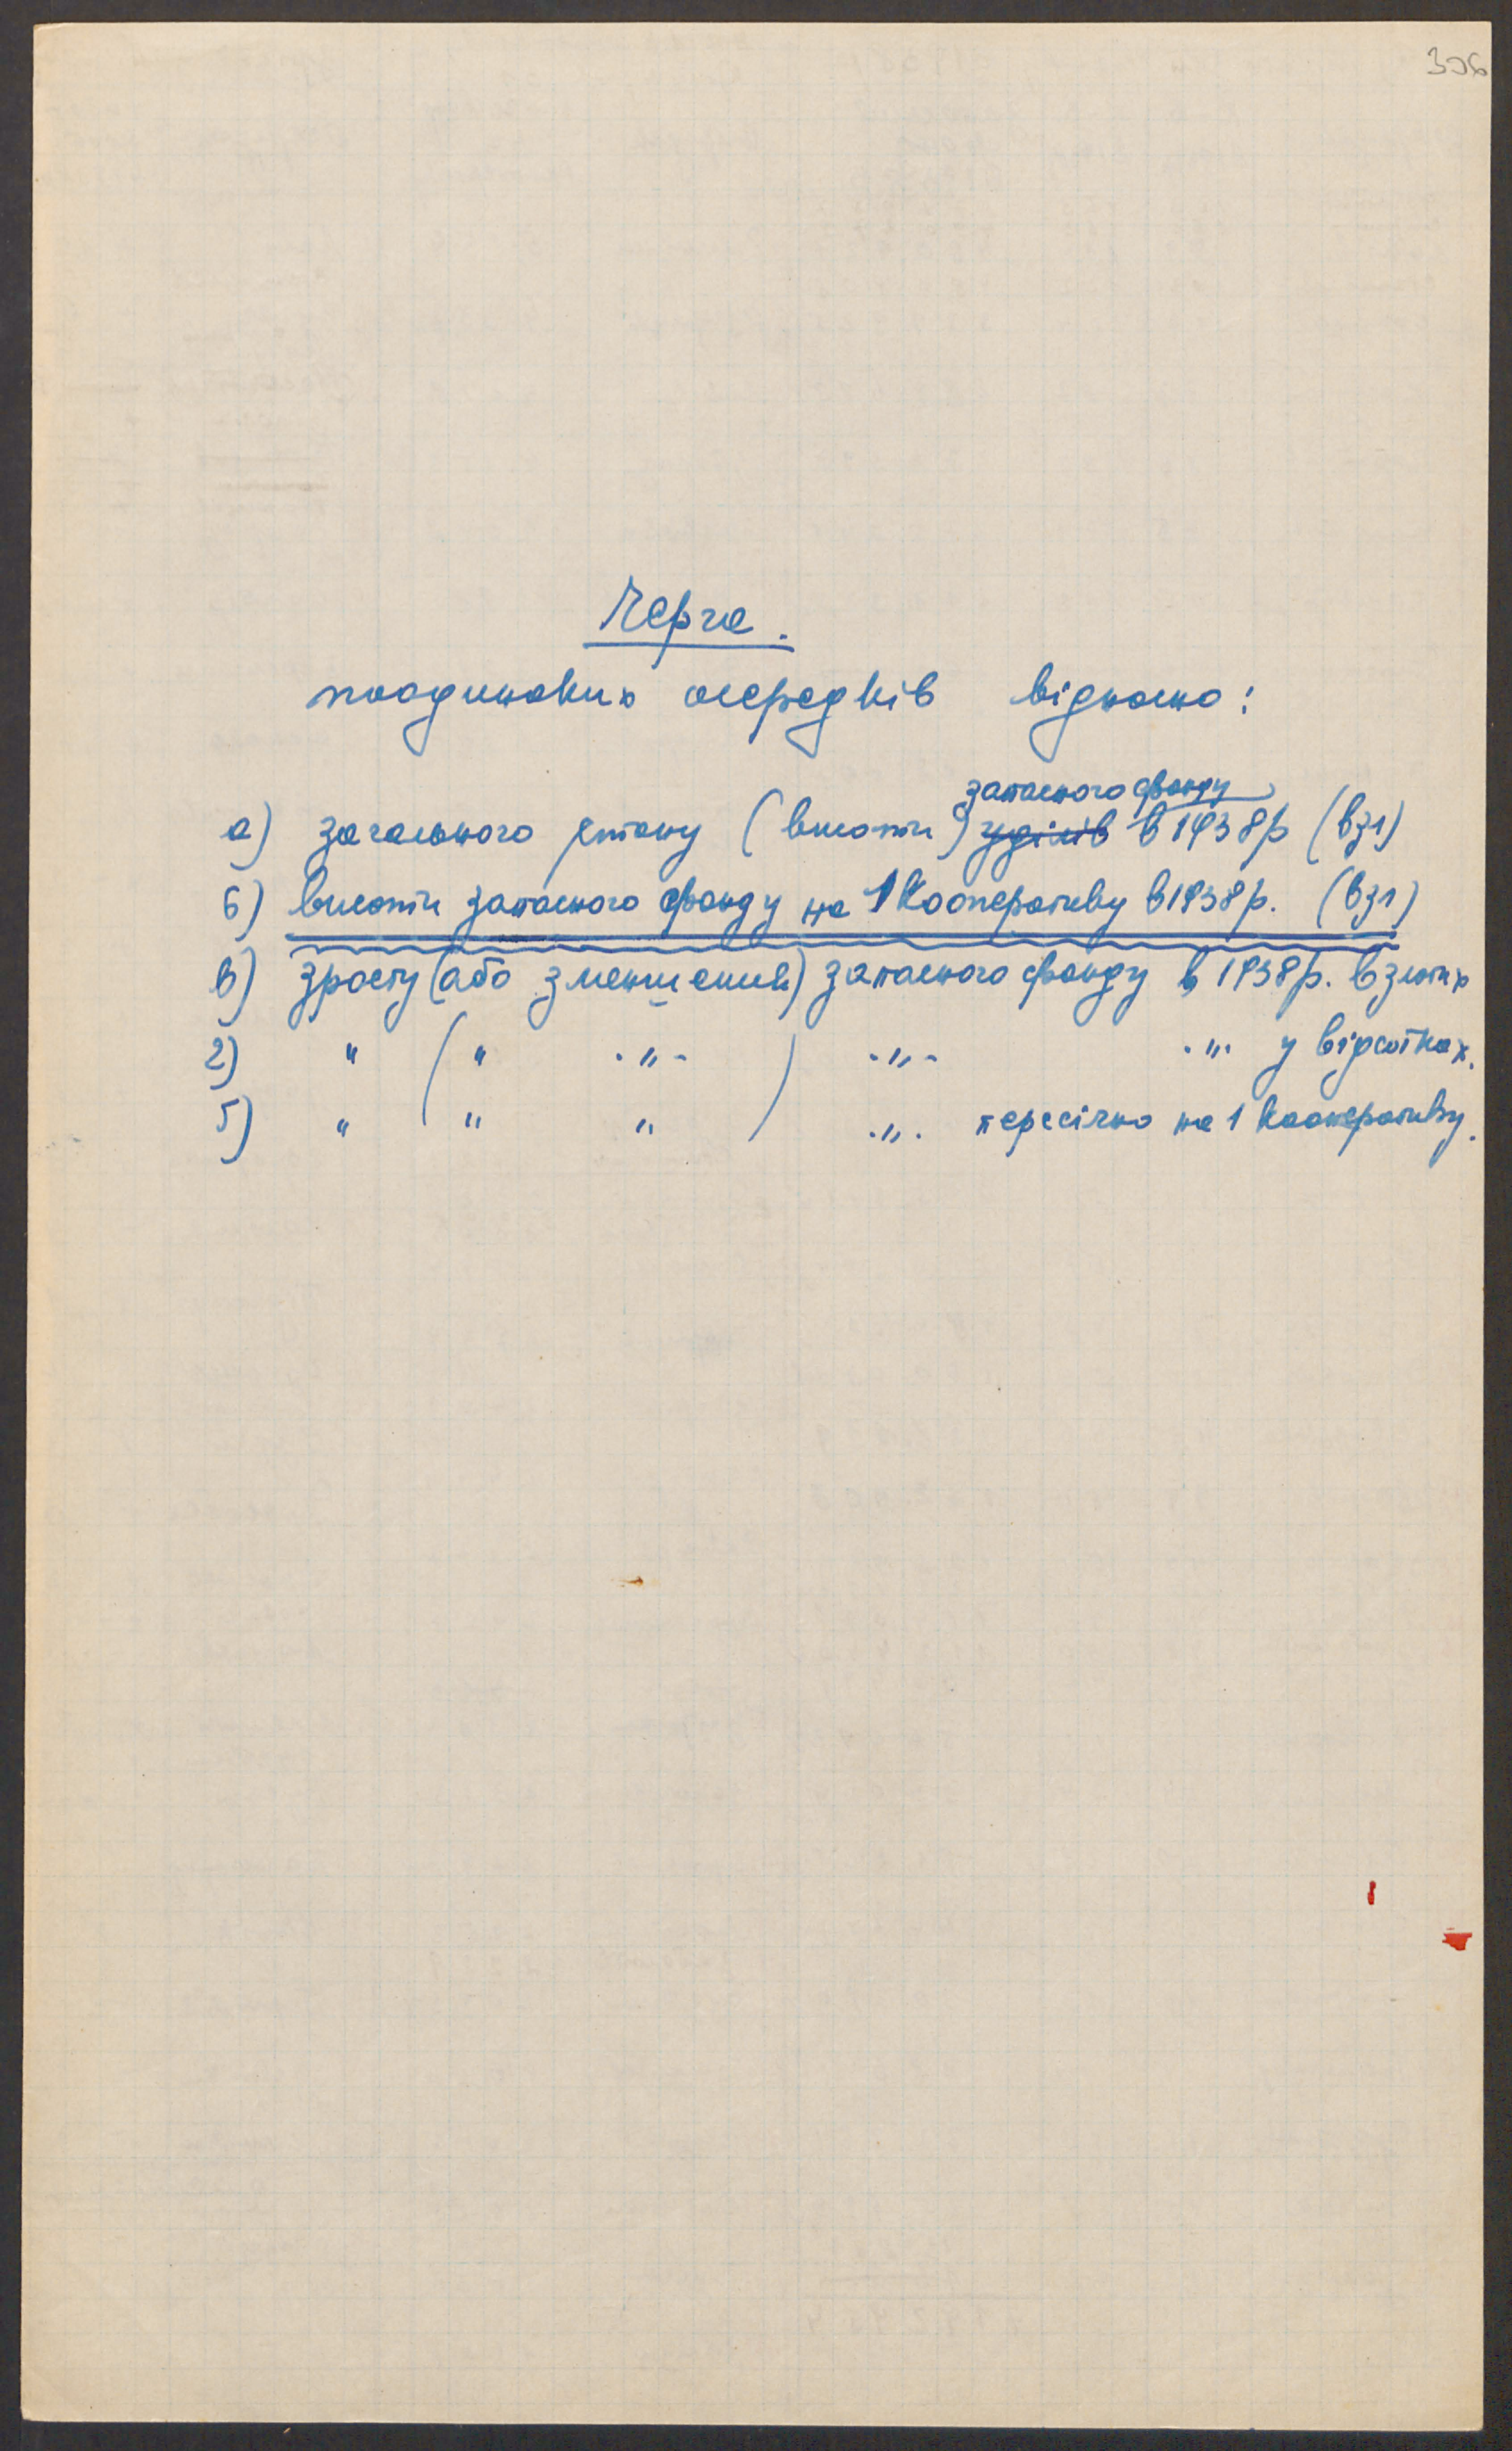 306
Черга.
поодиноких осередків відносно:
запасного фонду
а) загального стану (висоти) уділів в 1938 р (в зл)
б) висоти запасного фонду на 1 кооперативу в 1938 р. (в зл)
в) зросту (або зменшення) запасного фонду в 1938 р. в злотих
г) " ( " ·"- ) ·"- ·"· у відсотках.
ґ) " ( " " ) ·"· пересічно на 1 кооперативу.